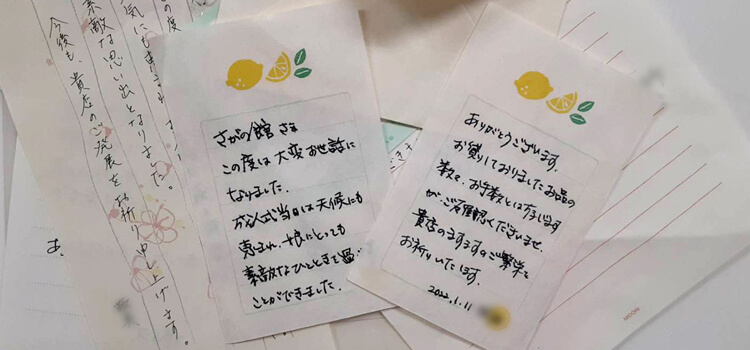 の度
気にも
素敵な思い出となりました。
今後も、貴店のご発展をお祈り申し上げます。
さがの館 さま
この度は大変お世話に
なりました。
成人式当日は天候にも
恵まれ、娘にとっても
素敵なひとときを過ごす
ことができました。
ありがとうございます。
お貸りしておりましたお品の
数々、お手数とは存じます
が、ご確認くださいませ。
貴店のますますのご繁栄を
お祈りいたします。
2022.1.11
MOON